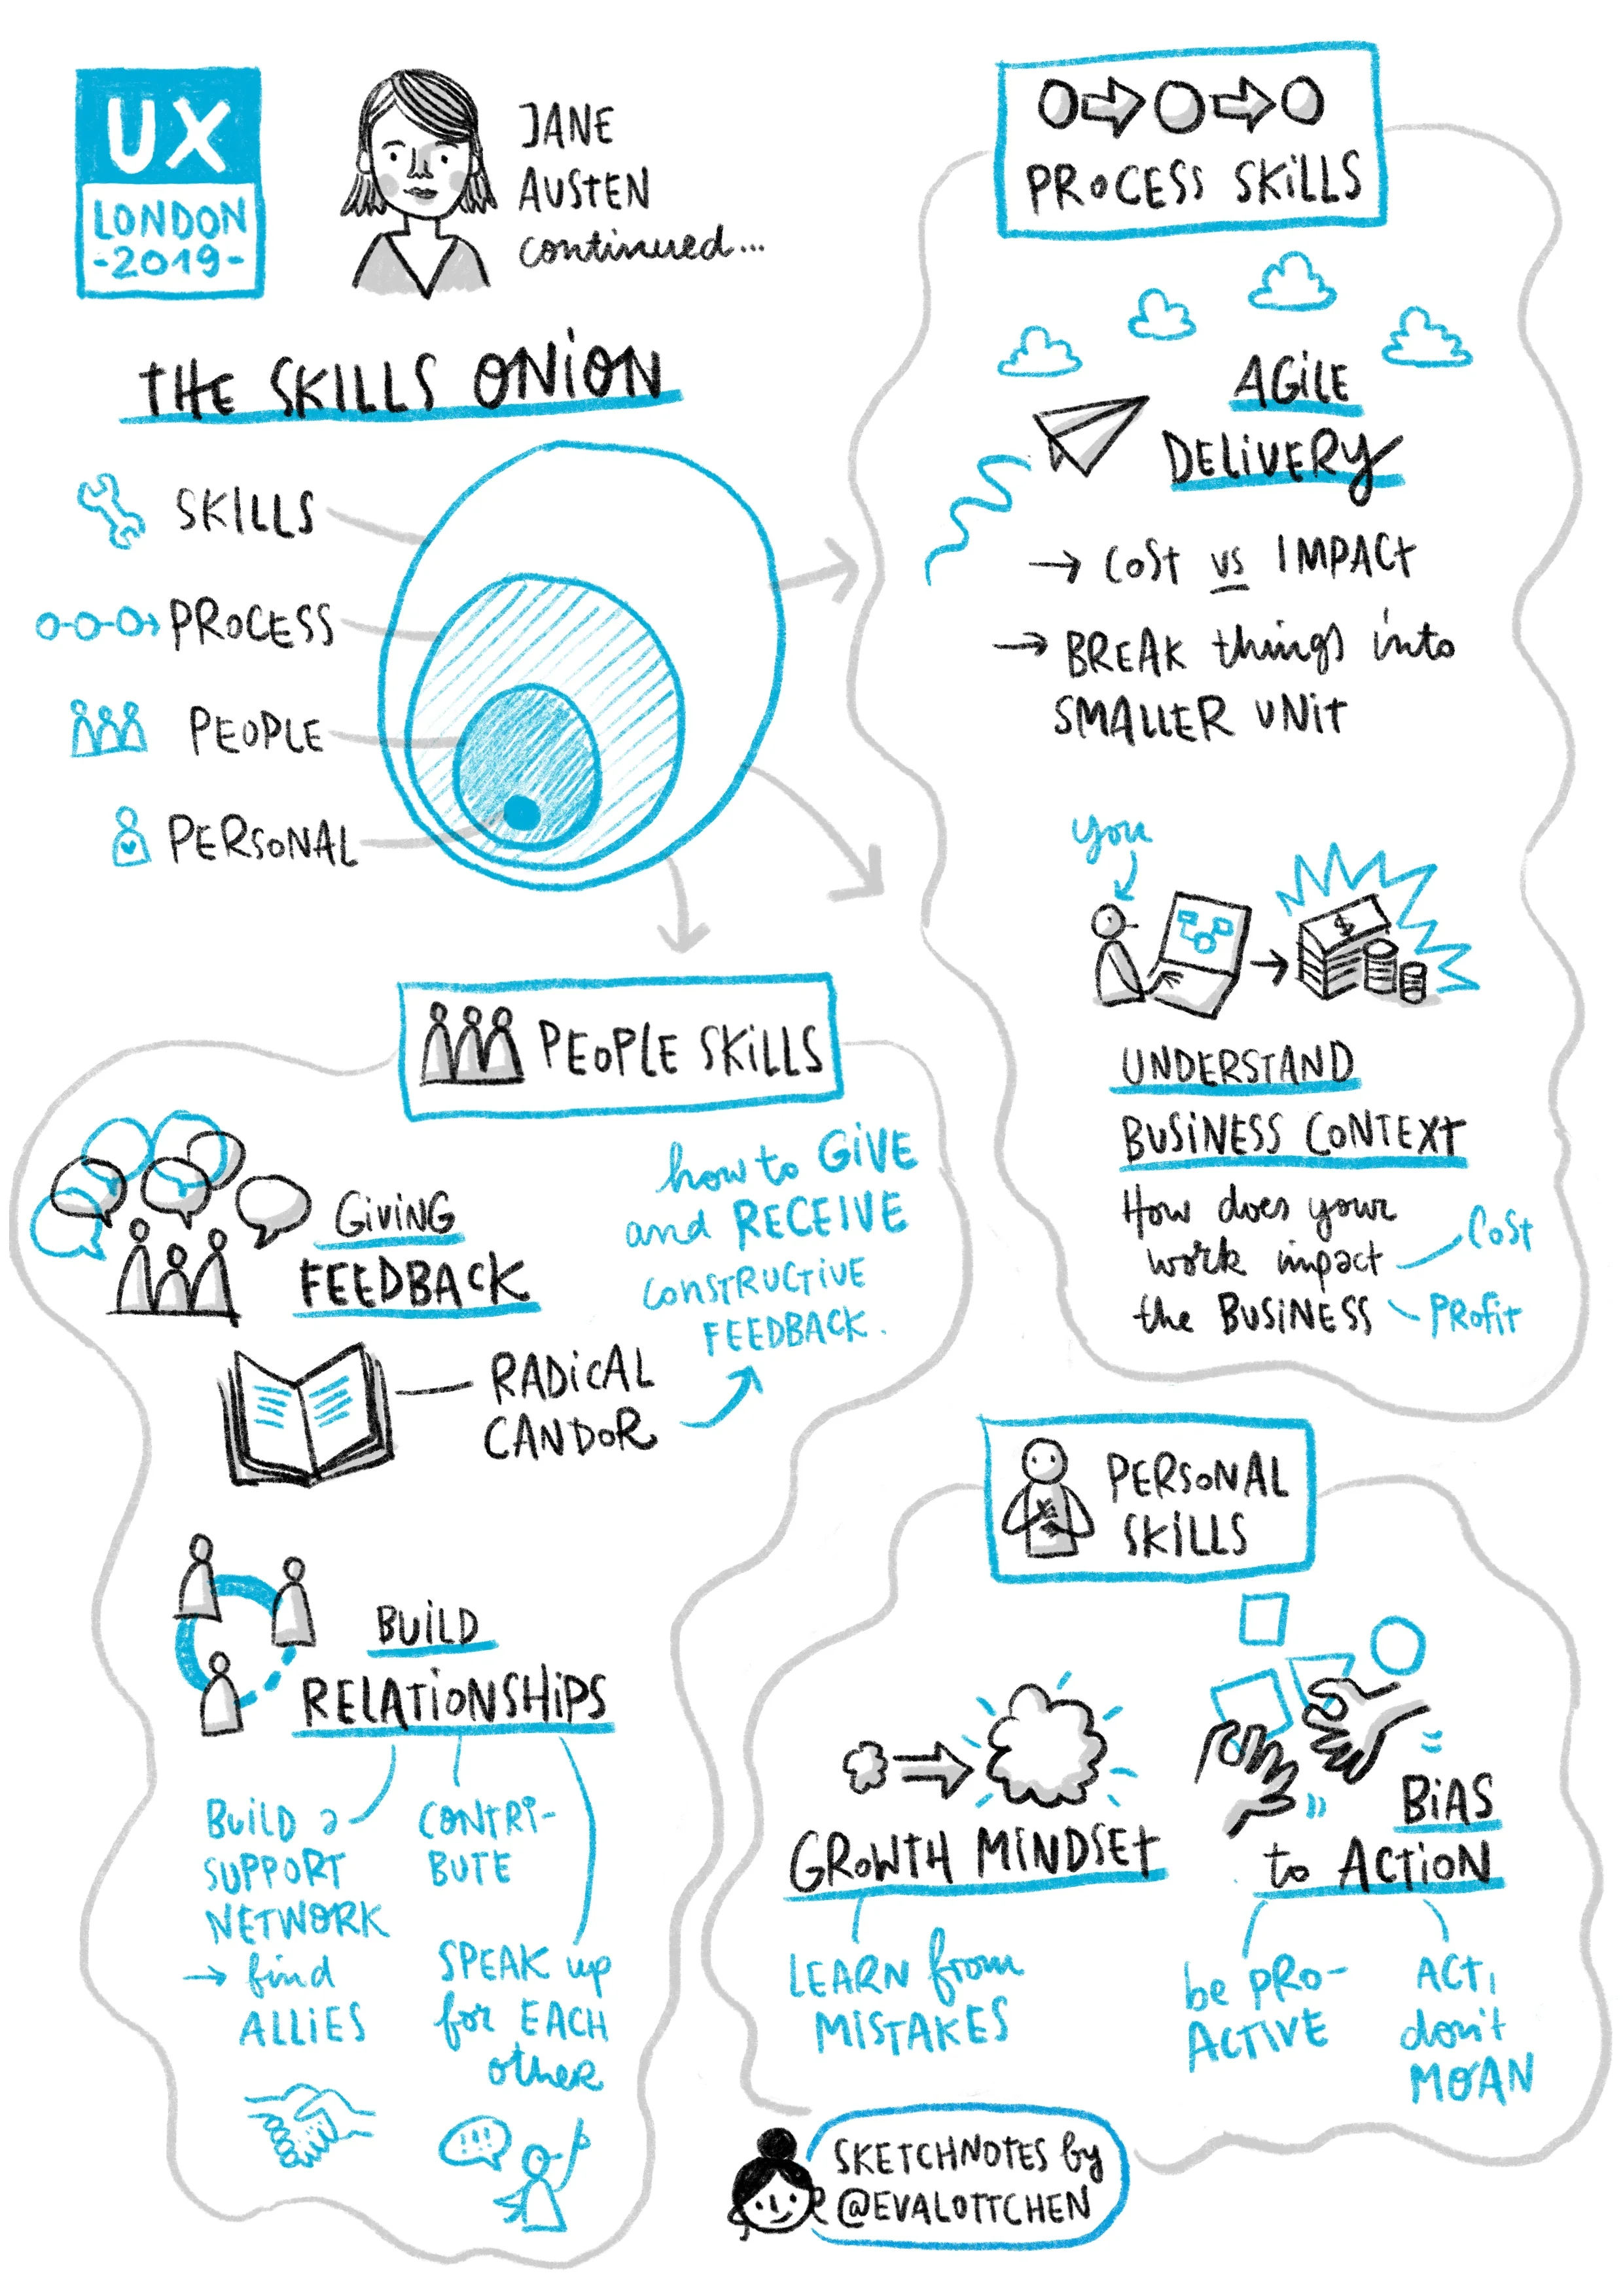 UX
LONDON
-2019-
JANE
AUSTEN
continued...
THE SKILLS ONION
SKILLS
PROCESS
PEOPLE
PERSONAL
PROCESS SKILLS
AGILE
DELIVERY
→ COST vs IMPACT
→ BREAK things into
SMALLER UNIT
you
$
UNDERSTAND
BUSINESS CONTEXT
How does your
work impact
the BUSINESS
COST
PROFIT
PEOPLE SKILLS
GIVING
FEEDBACK
how to GIVE
and RECEIVE
CONSTRUCTIVE
FEEDBACK.
RADICAL
CANDOR
BUILD
RELATIONSHIPS
BUILD a
SUPPORT
NETWORK
→ find
ALLIES
CONTRI-
BUTE
SPEAK up
for EACH
other
!!!
PERSONAL
SKILLS
GROWTH MINDSET
LEARN from
MISTAKES
BIAS
to ACTION
be PRO-
ACTIVE
ACT,
don't
MOAN
SKETCHNOTES by
@EVALOTTCHEN